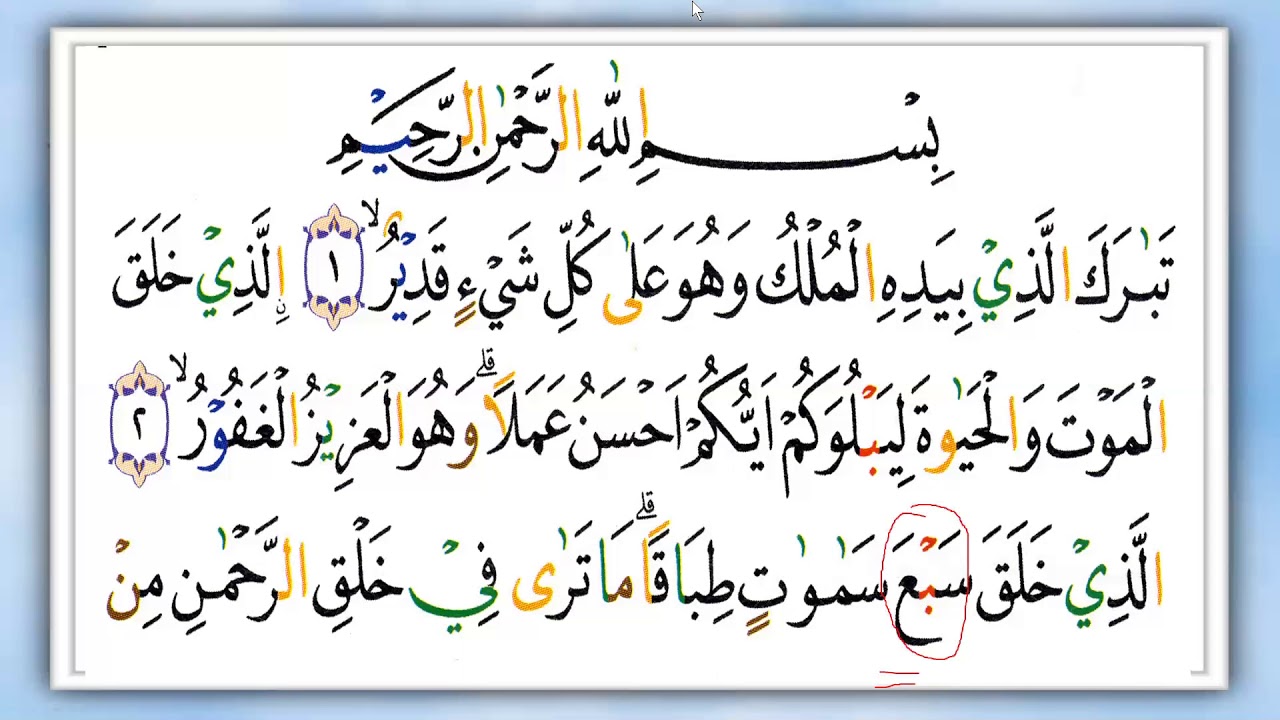 بِسْمِ اللّٰهِ الرَّحْمٰنِ الرَّحِيْمِ
تَبٰرَكَ الَّذِيْ بِيَدِهِ الْمُلْكُ وَهُوَ عَلٰى كُلِّ شَيْءٍ قَدِيْرٌۙ ١ اِۨلَّذِيْ خَلَقَ
الْمَوْتَ وَالْحَيٰوةَ لِيَبْلُوَكُمْ اَيُّكُمْ اَحْسَنُ عَمَلًاۗ وَهُوَ الْعَزِيْزُ الْغَفُوْرُۙ ٢
الَّذِيْ خَلَقَ سَبْعَ سَمٰوٰتٍ طِبَاقًاۗ مَا تَرٰى فِيْ خَلْقِ الرَّحْمٰنِ مِنْ